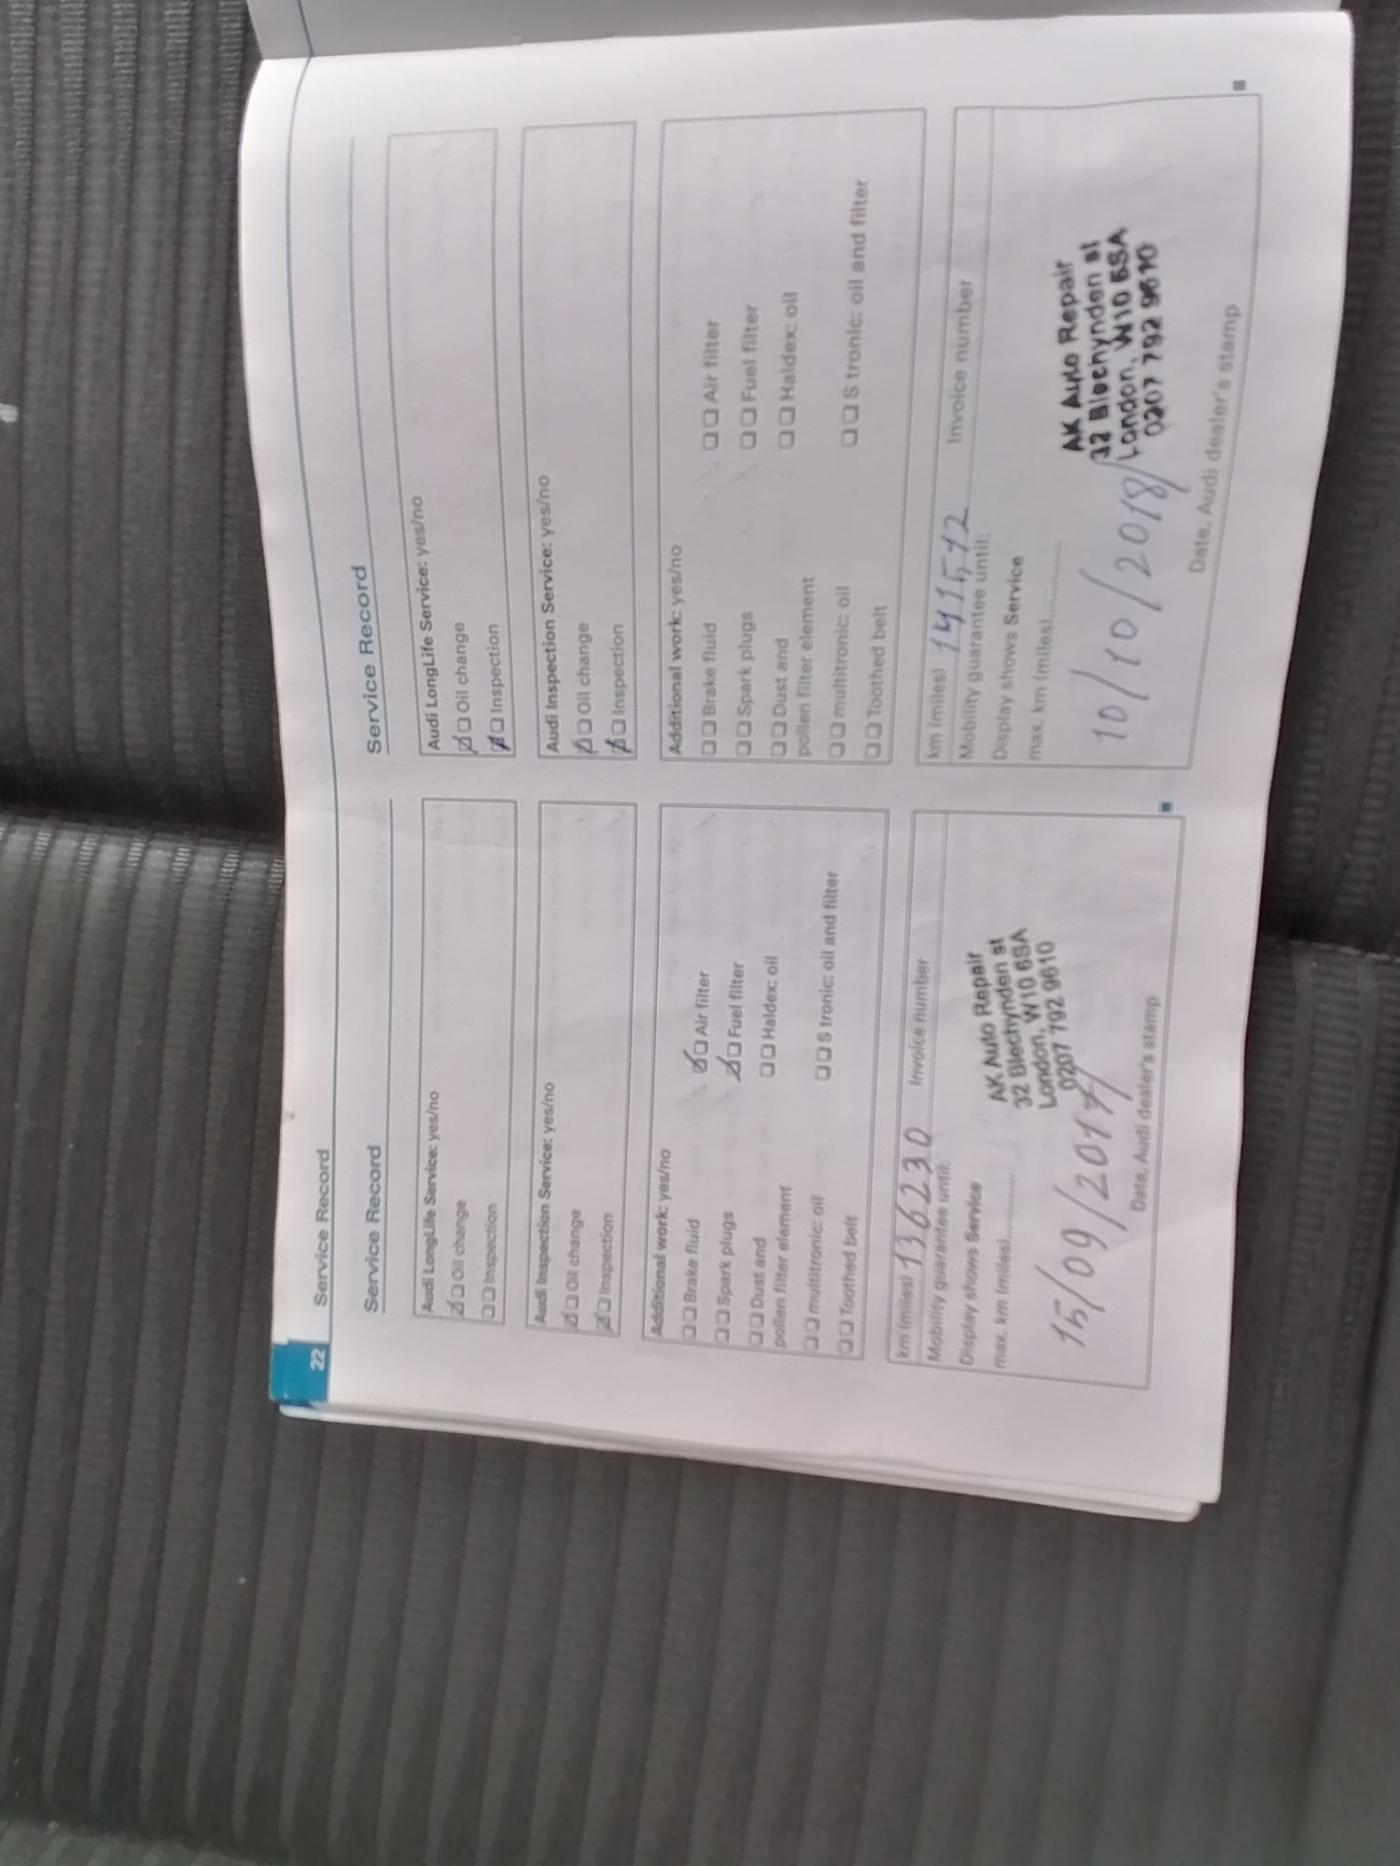 22
Service Record
Service Record
Audi LongLife Service: yes/no
Oil change
Inspection
Audi Inspection Service: yes/no
Oil change
Inspection
Additional work: yes/no
Brake fluid
Air filter
Spark plugs
Fuel filter
Dust and
Haldex: oil
pollen filter element
multitronic: oil
S tronic: oil and filter
Toothed belt
km (miles) 136230 Invoice number
Mobility guarantee until:
Display shows Service
max. km (miles)..............
AK Auto Repair
32 Blechynden st
London, W10 6SA
0207 792 9610
15/09/2017/
Date, Audi dealer's stamp
Service Record
Audi LongLife Service: yes/no
Oil change
Inspection
Audi Inspection Service: yes/no
Oil change
Inspection
Additional work: yes/no
Brake fluid
Air filter
Spark plugs
Fuel filter
Dust and
Haldex: oil
pollen filter element
multitronic: oil
S tronic: oil and filter
Toothed belt
km (miles) 141572 Invoice number
Mobility guarantee until:
Display shows Service
max. km (miles)..............
AK Auto Repair
32 Blechynden st
London, W10 6SA
0207 792 9610
10/10/2018/
Date, Audi dealer's stamp